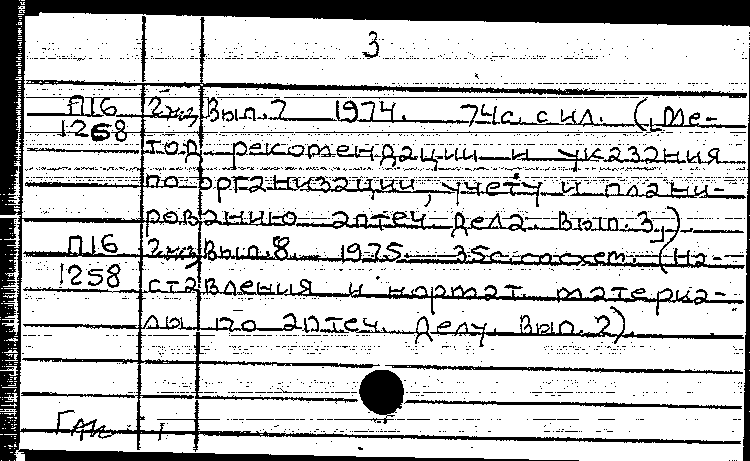 3
П16 2экз Вып.7 1974. 74с. с ил. („Ме-
1268 тод. рекомендации и указания
по организации, учету и плани-
рованию аптеч. дела. Вып.3„).
П16 2экз Вып.8. 1975. 35с. со схем. (На-
1258 ставления и нормат. материа-
лы по аптеч. делу. Вып.2).